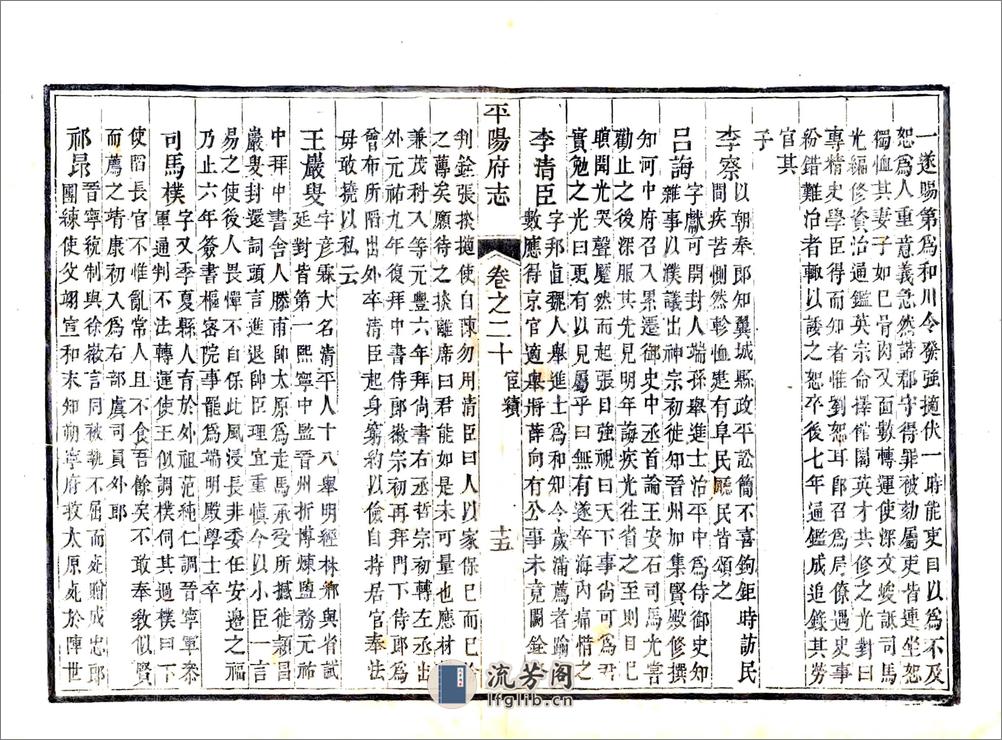 一遂賜第爲和川令發強擿伏一時能吏目以爲不及
恕爲人重意義急然諾郡守得罪被劾屬吏皆連坐恕
獨恤其妻子如已骨肉又面數轉運使深文峻詆司馬
光編修資治通鑑英宗命擇館閣英才共修之光對曰
專精史學臣得而者惟劉恕耳即召爲局僚遇史事
紛錯難治者輒以諉之恕卒後七年通鑑成追錄其勞
官其
子
李察以朝奉郎知翼城縣政平訟簡不喜鉤鉅時訪民
間疾苦惻然軫恤趯有阜民廳民皆頌之
呂誨字獻可開封人端孫舉進士治平中爲侍御史知
雜事以濮議出神宗初徙知晉州加集賢殿修撰
知河中府召入累遷御史中丞首論王安石司馬光嘗
勸止之後深服其先見明年誨疾光往省之至則目已
瞑聞光哭聲蹷然而起張目強視曰天下事尚可爲君
實勉之光曰更有以見屬乎曰無有遂卒海內痛惜之
李清臣字邦直魏人舉進士爲和知令歲滿薦者踰
數應得京官適舉將薛向有公事未竟閫銓
平陽府志
卷之二十
宦績
十五
判銓張掞擿使自陳勿用清臣曰人以家保已而已
之薄矣願待之掞離席曰君能如是未可量也應材
兼茂科入等元豐六年拜尚書右丞哲宗初轉左丞出
外元祐九年復拜中書侍郎徽宗初再拜門下侍郎爲
曾布所陷出外卒清臣起身窮約以儉自持居官奉法
毋敢撓以私云
王嚴叟字彥霖大名清平人十八舉明經林鄉與省試
延對皆第一熙寧中監晉州折博煉鹽務元祐
中拜中書舍人滕甫帥太原爲走馬承受所撼徙潁昌
嚴叟封還詞頭言進退帥臣理宜重慎今以小臣一言
易之使後人畏憚不自保此風浸長非委任安邊之福
乃止六年簽書樞密院事罷爲端明殿學士卒
司馬樸字又季夏縣人育於外祖范純仁調晉寧軍叅
軍通判不法轉運使王似調樸伺其過樸曰下
使陷長官不惟亂常人且不食吾餘矣不敢奉敎似賢
而薦之靖康初入爲右部虞司員外郎
祁昻晉寧統制與徐徽言同被執不屈而死贈成忠郎
團練使父翊宣和末知朔寧府救太原死於陣世